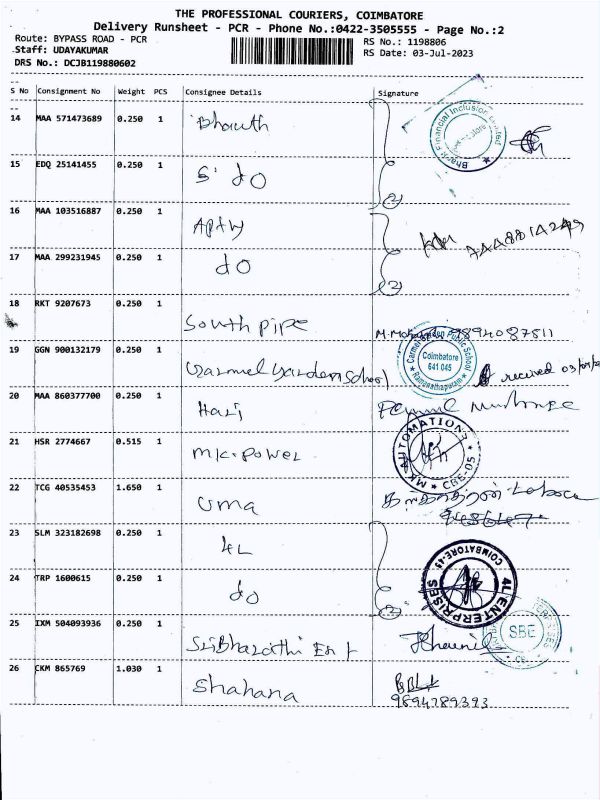 THE PROFESSIONAL COURIERS, COIMBATORE
Delivery Runsheet - PCR - Phone No.:0422-3505555 - Page No.:2
Route: BYPASS ROAD - PCR
RS No.: 1198806
Staff: UDAYAKUMAR
RS Date: 03-Jul-2023
DRS No.: DCJB119880602
S No Consignment No Weight PCS Consignee Details Signature
14 MAA 571473689 0.250 1 Bharath
Bharat Financial Inclusion Limited
15 EDQ 25141455 0.250 1 S. do
16 MAA 103516887 0.250 1
17 MAA 299231945 0.250 1 do
18 RKT 9207673 0.250 1 South pipe
9894087811
19 GGN 900132179 0.250 1 Carmel Garden School
Carmel Garden Public School
Coimbatore
641 045
Ramanathapuram
received
20 MAA 860377700 0.250 1 Hari
21 HSR 2774667 0.515 1 MK. Power
MK AUTOMATION
CBE-05
22 TCG 40535453 1.650 1 Uma
23 SLM 323182698 0.250 1 4L
24 TRP 1600615 0.250 1 do
4L ENTERPRISES
COIMBATORE-45
25 IXM 504093936 0.250 1 Sri Bharathi Ent
SBE
26 CKM 865769 1.030 1 Shahana
9894789393